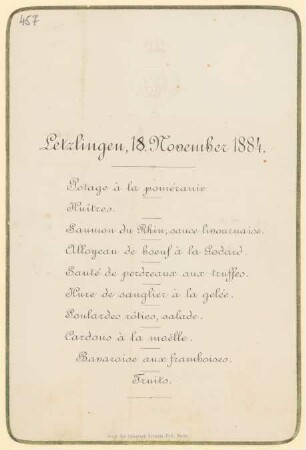 457
Letzlingen, 18. November 1884.
Potage à la poméranie
Huîtres.
Saumon du Rhin, sauce livournaise.
Alloyeau de boeuf à la Godard.
Sauté de perdreaux aux truffes.
Hure de sanglier à la gelée.
Poulardes rôties, salade.
Cardons à la moëlle.
Bavaroise aux framboises.
Fruits.